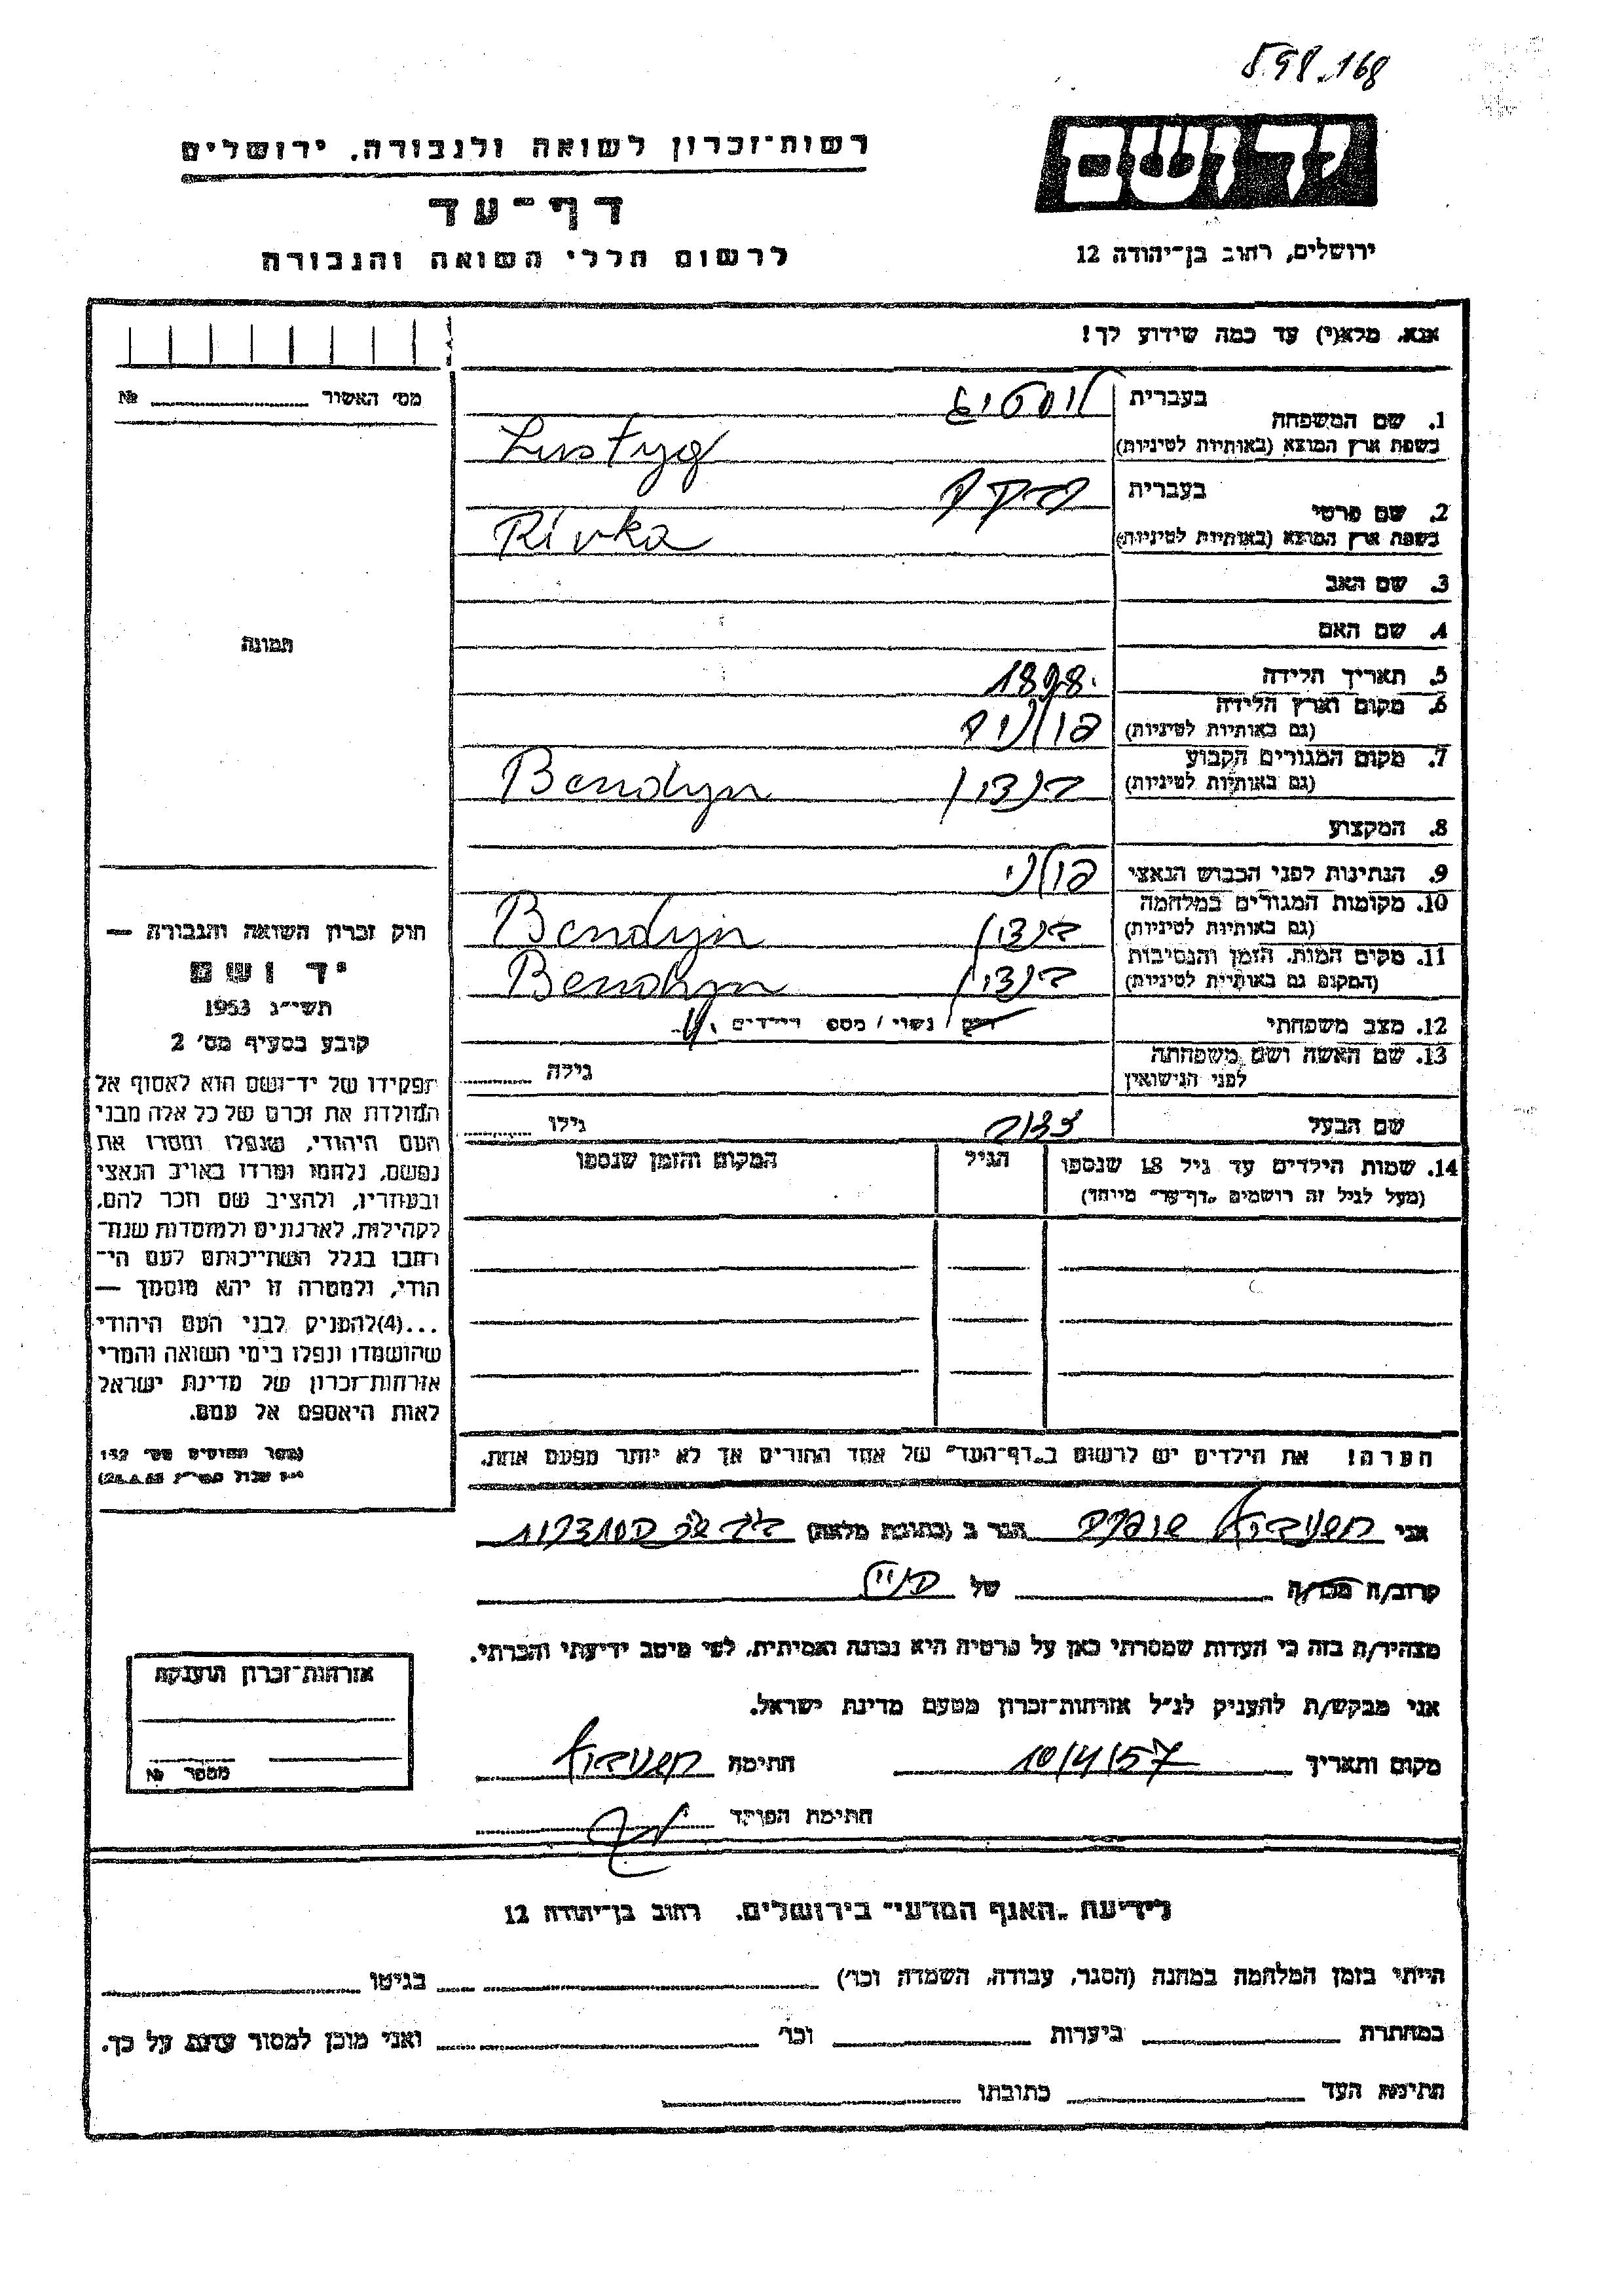 598.168
יד ושם
רשות־זכרון לשואה ולגבורה. ירושלים
דף־עד
לרשום חללי השואה והגבורה
ירושלים, רחוב בן־יהודה 12
אנא, מלא(י) עד כמה שידוע לך!
מס' האשור № 
1. שם המשפחה בעברית לוסטיג
בשפת ארץ המוצא (באותיות לטיניות) Lustyg
2. שם פרטי בעברית רבקה
בשפת ארץ המוצא (באותיות לטיניות) Rivka
3. שם האב
4. שם האם
תמונה
5. תאריך הלידה 1898.
6. מקום וארץ הלידה
(גם באותיות לטיניות) פולניה
7. מקום המגורים הקבוע
(גם באותיות לטיניות) בנדין Bendyn
8. המקצוע
9. הנתינות לפני הכבוש הנאצי פולני
10. מקומות המגורים במלחמה
(גם באותיות לטיניות) בנדין Bendyn
11. מקום המות, הזמן והנסיבות
(המקום גם באותיות לטיניות) בנדין Bendyn
12. מצב משפחתי רווק / נשוי / מספר הילדים
13. שם האשה ושם משפחתה
לפני הנישואין גילה
שם הבעל גילו
14. שמות הילדים עד גיל 18 שנספו הגיל המקום והזמן שנספו
(מעל לגיל זה רושמים „דף־עד" מיוחד)
חוק זכרון השואה והגבורה —
יד ושם
תשי״ג 1953
קובע בסעיף מס' 2
תפקידו של יד־ושם הוא לאסוף אל
המולדת את זכרם של כל אלה מבני
העם היהודי, שנפלו ומסרו את
נפשם, נלחמו ומרדו באויב הנאצי
ובעוזריו, ולהציב שם וזכר להם,
לקהילות, לארגונים ולמוסדות שנח־
רבו בגלל השתייכותם לעם הי־
הודי, ולמטרה זו יהא מוסמך —
...(4)להעניק לבני העם היהודי
שהושמדו ונפלו בימי השואה והמרי
אזרחות־זכרון של מדינת ישראל
לאות היאספם אל עמם.
הערה! את הילדים יש לרשום ב„דף־העד" של אחד ההורים אך לא יותר מפעם אחת.
אני הגר ב (כתובת מלאה)
קרוב/ה מכר/ה של
מצהיר/ה בזה כי העדות שמסרתי כאן על פרטיה היא נכונה ואמיתית, לפי מיטב ידיעתי והכרתי.
אני מבקש/ת להעניק לנ״ל אזרחות־זכרון מטעם מדינת ישראל.
מקום ותאריך 10/4/57 חתימה
חתימת הפוקד
אזרחות־זכרון הוענקה
מספר №
לידיעת „האגף המדעי" בירושלים. רחוב בן־יהודה 12
הייתי בזמן המלחמה במחנה (הסגר, עבודה, השמדה וכו') בגיטו
במחתרת ביערות וכו' ואני מוכן למסור עדות על כך.
חתימת העד כתובתו